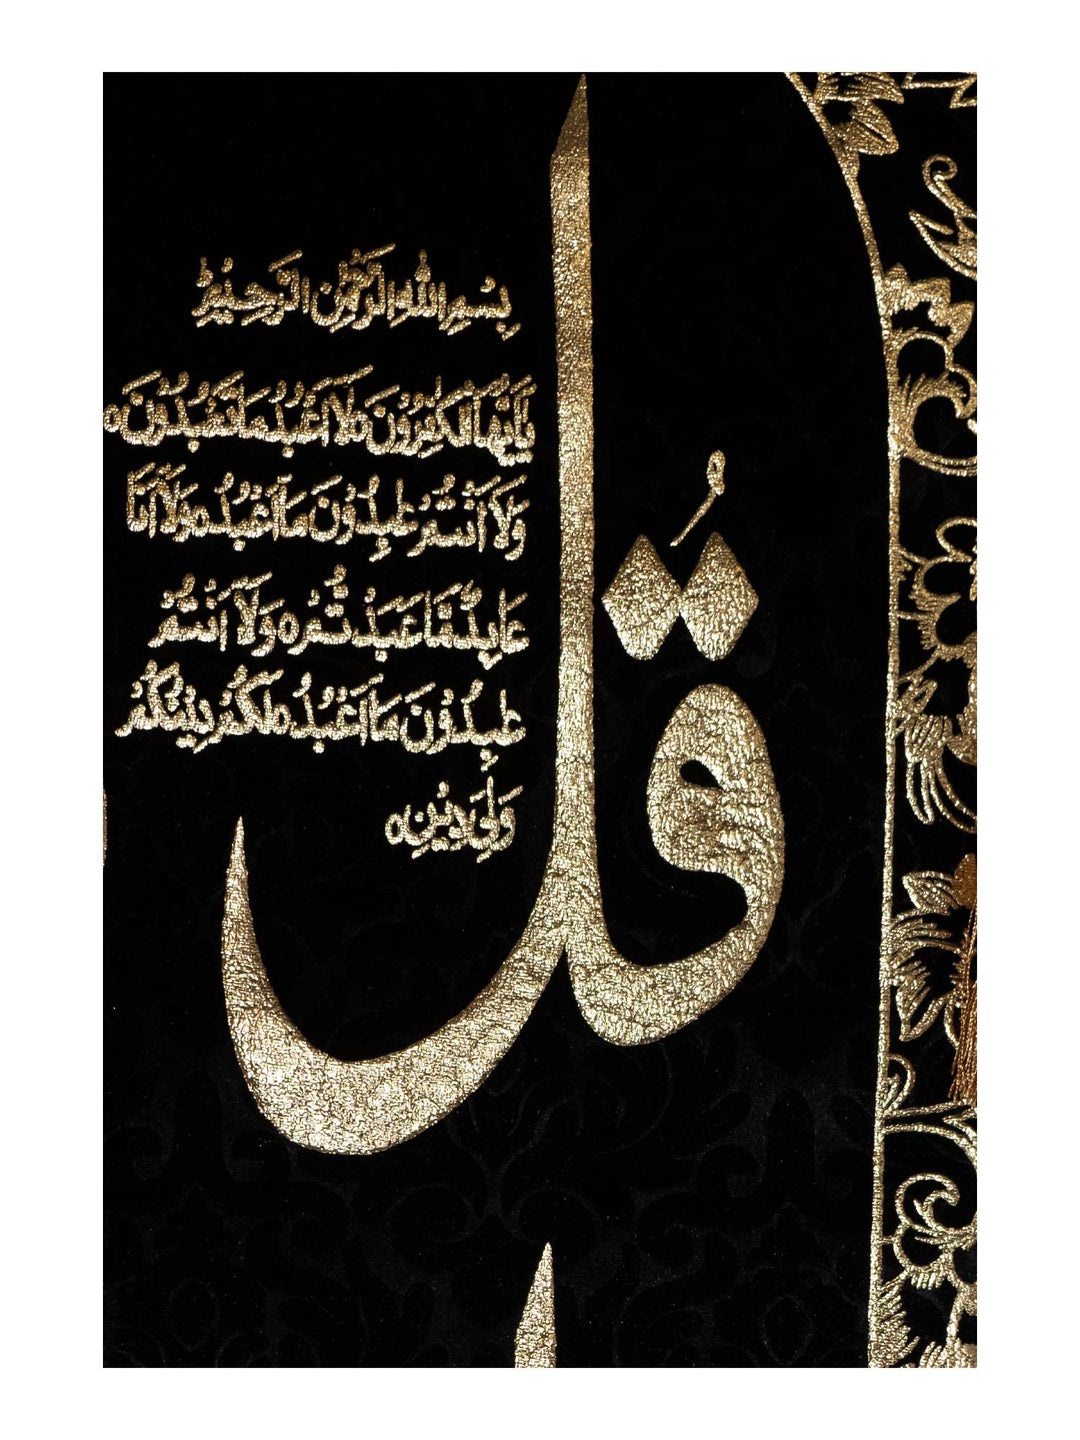 بِسْمِ اللهِ الرَّحْمٰنِ الرَّحِيْمِ
قُلْ
يٰٓاَيُّهَا الْكٰفِرُوْنَ ۝ لَآ اَعْبُدُ مَا تَعْبُدُوْنَ ۝
وَلَآ اَنْتُمْ عٰبِدُوْنَ مَآ اَعْبُدُ ۝ وَلَآ اَنَا
عَابِدٌ مَّا عَبَدْتُّمْ ۝ وَلَآ اَنْتُمْ
عٰبِدُوْنَ مَآ اَعْبُدُ ۝ لَكُمْ دِيْنُكُمْ
وَلِيَ دِيْنِ ۝